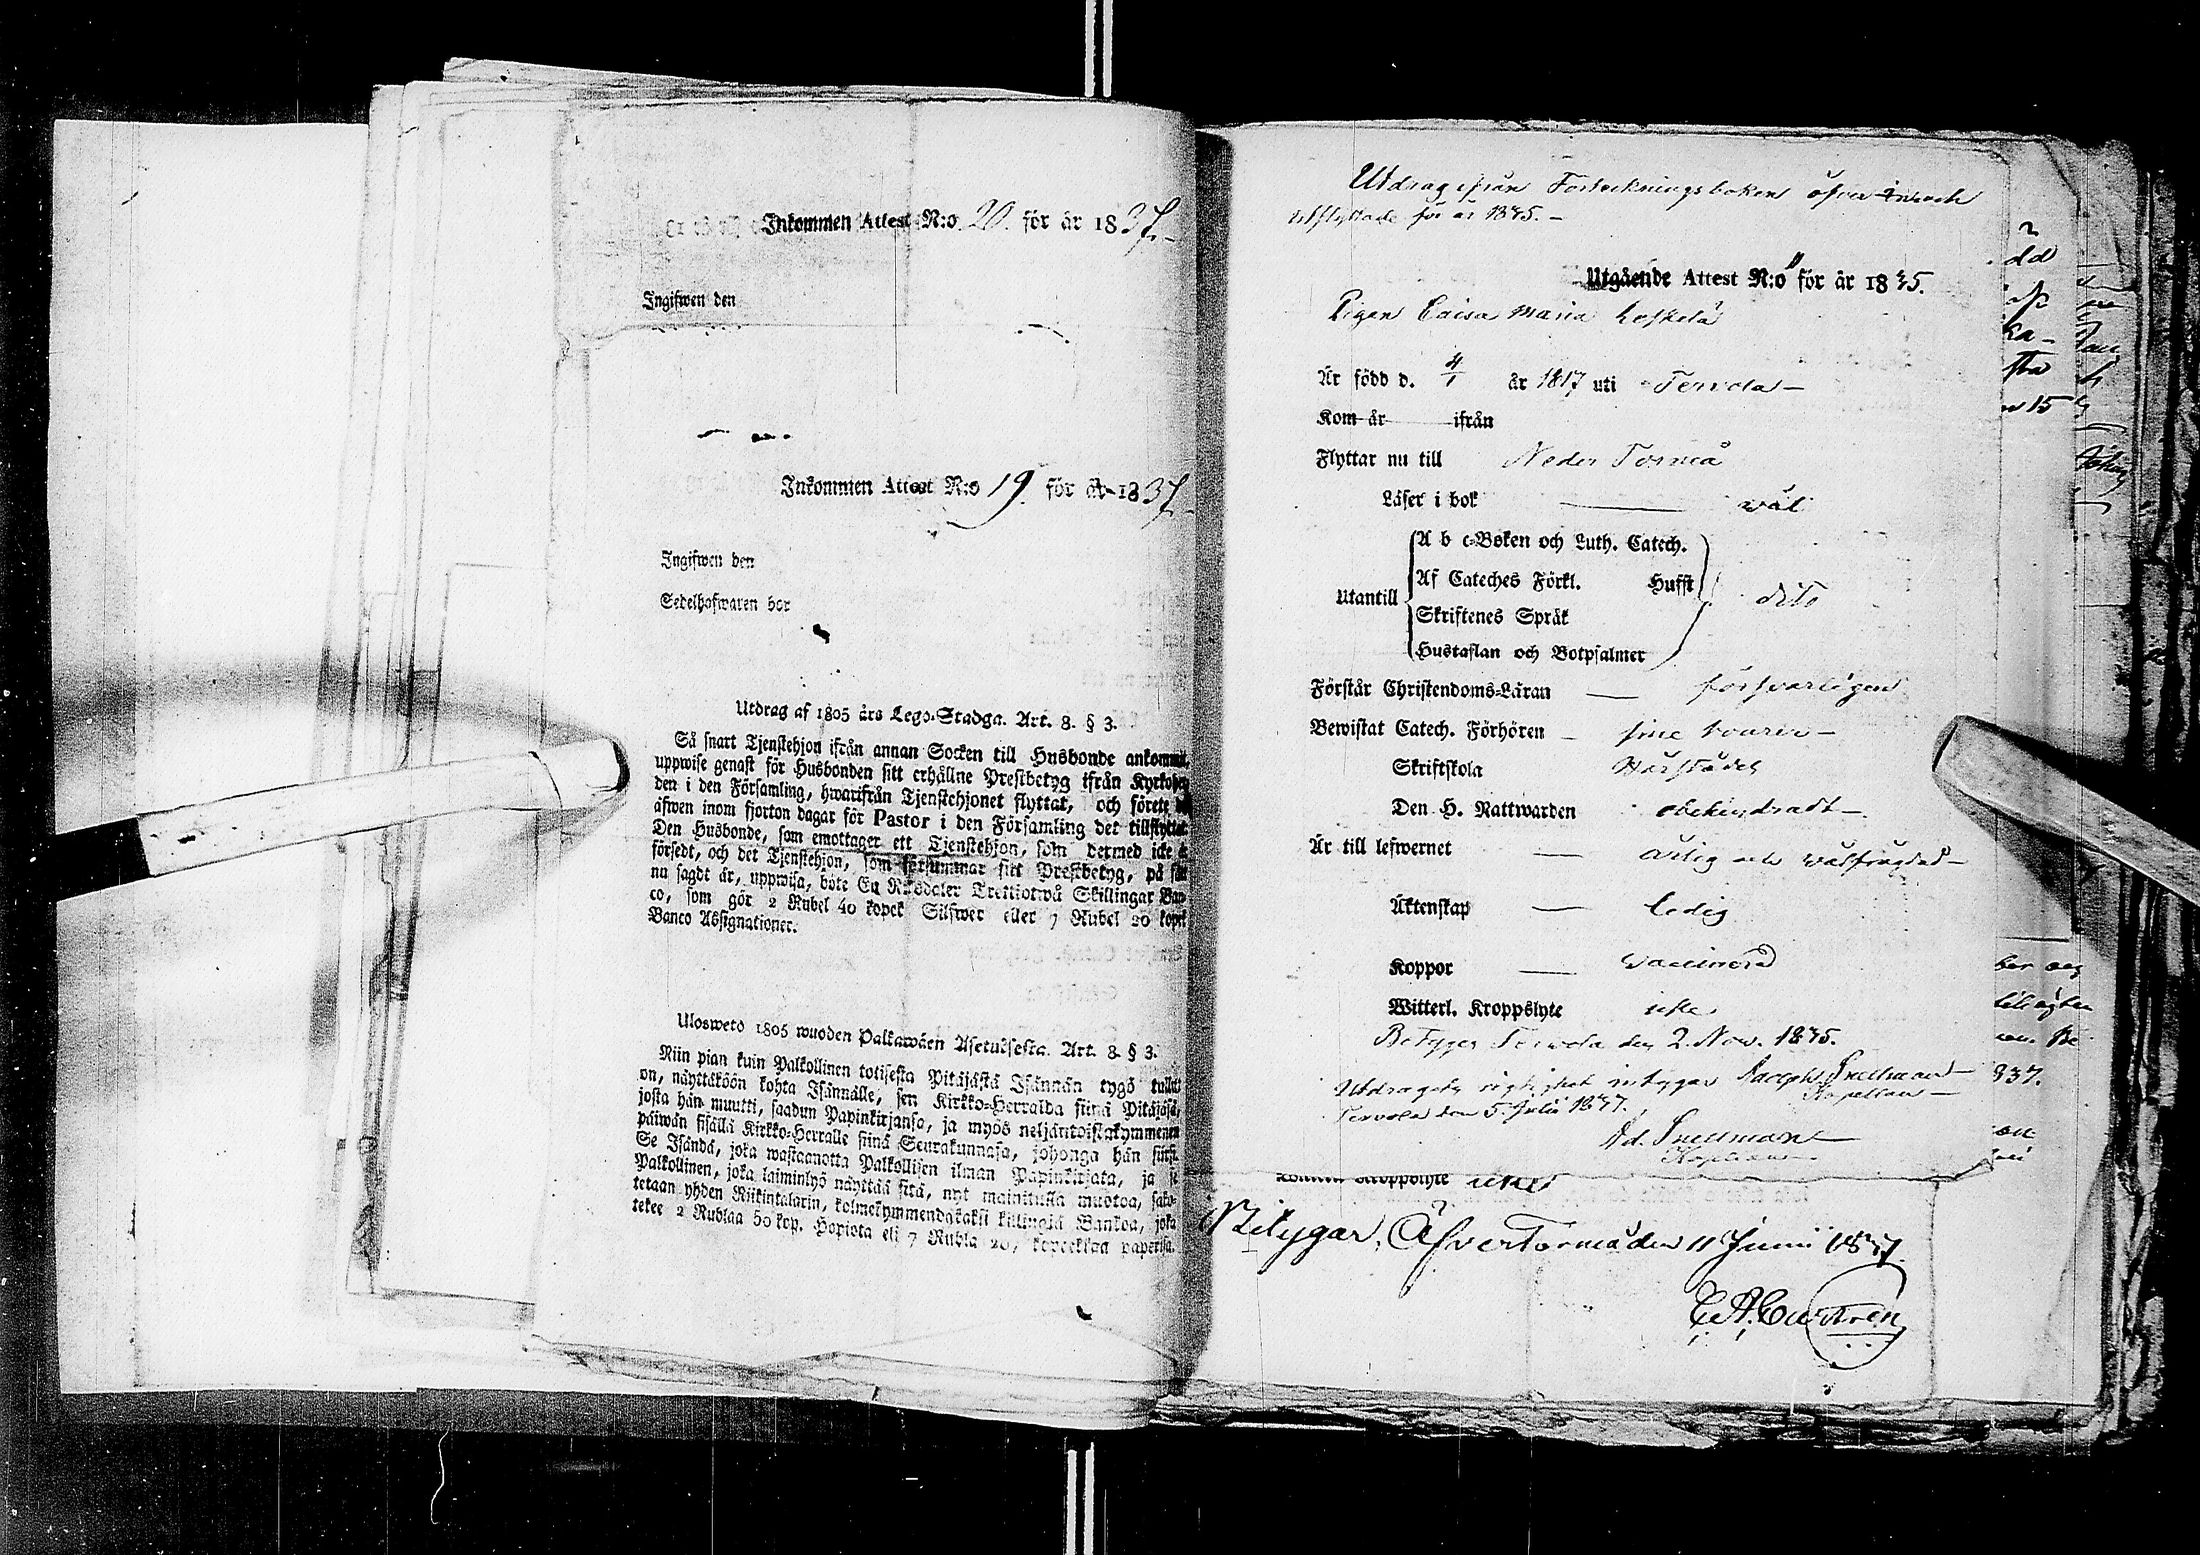 Inkommen Attest N:o 20. för år 1837.
Ingifwen den
Inkommen Attest N:o 19. för år 1837.
Ingifwen den
Sedelhafwaren bor
Utdrag af 1805 års Lego-Stadga. Art. 8. § 3.
Så snart Tjenstehjon ifrån annan Socken till Husbonde ankommit,
uppwise genast för Husbonden sitt erhållne Prestbetyg ifrån
den i den Församling, hwarifrån Tjenstehjonet flyttat, och förete
äfwen inom fjorton dagar för Pastor i den Församling det tillflyttat
Den Husbonde, som emottager ett Tjenstehjon, som dermed icke är
försedt, och det Tjenstehjon, som försummar sitt Prestbetyg, på sätt
nu sagdt är, uppwisa, böte En Riksdaler Trettiotwå Skillingar Ban-
co, som gör 2 Rubel 40 kopek Silfwer eller 7 Rubel 20 kopek
Banco Assignationer.
Ulosweto 1805 wuoden Palkawäen Asetuksesta. Art. 8. § 3.
Niin pian kuin Palkollinen toisesta Pitäjästä Isännän tygö tullut
on, näyttäköön kohta Isännälle, sen Kirkko-Herralda siinä Pitäjäsä,
josta hän muutti, saadun Papinkirjansa, ja myös neljäntoistakymmenen
päiwän sisällä Kirkko-Herralle siinä Seurakunnasa, johonga hän siirsi.
Se Isändä, joka wastaanotta Palkollisen ilman Papinkirjata, ja se
Palkollinen, joka laiminlyö näyttää sitä, nyt mainitulla muotoa, sako-
tetaan yhden Riikintalarin, kolmekymmendäkaksi killingiä Bankoa, joka
tekee 2 Rublaa 50 kop. Hopiota eli 7 Rubla 20, kopeekkaa paperisa.
Utdrag ifrån Forteckningsboken öfver in och
utflyttade för år 1835.
Utgående Attest N:o för år 1835.
Pigan Caisa Maria
Är född d. 4/1 år 1817 uti Tervola
Kom år ifrån
Flyttar nu till Neder Torneå
Läser i bok wäl
A b c-Boken och Luth. Catech.
Af Cateches Förkl. Hufft
Utantill dito
Skriftenes Språk
Hustaflan och Botpsalmer
Förstår Christendoms-Läran försvarligen
Bewistat Catech. Förhören sine
Skriftskola
Den H. Nattwarden obehindradt
Är till lefwernet ärlig och wälfrägdad
Äktenskap ledig
Koppor vaccinerad
Witterl. Kroppslyte icke
Betygar Tervola den 2. Nov. 1835.
Utdragets rigtighet intygar Adolph Snellman
Kapellan
Tervola den 5 Julii 1837.
Ad. Snellman
Kapellan
Kroppslyte icke
Betygar, Öfver Torneå den 11 Junii 1837.
C. A. Castren
dd
ka-
sta
15
837.